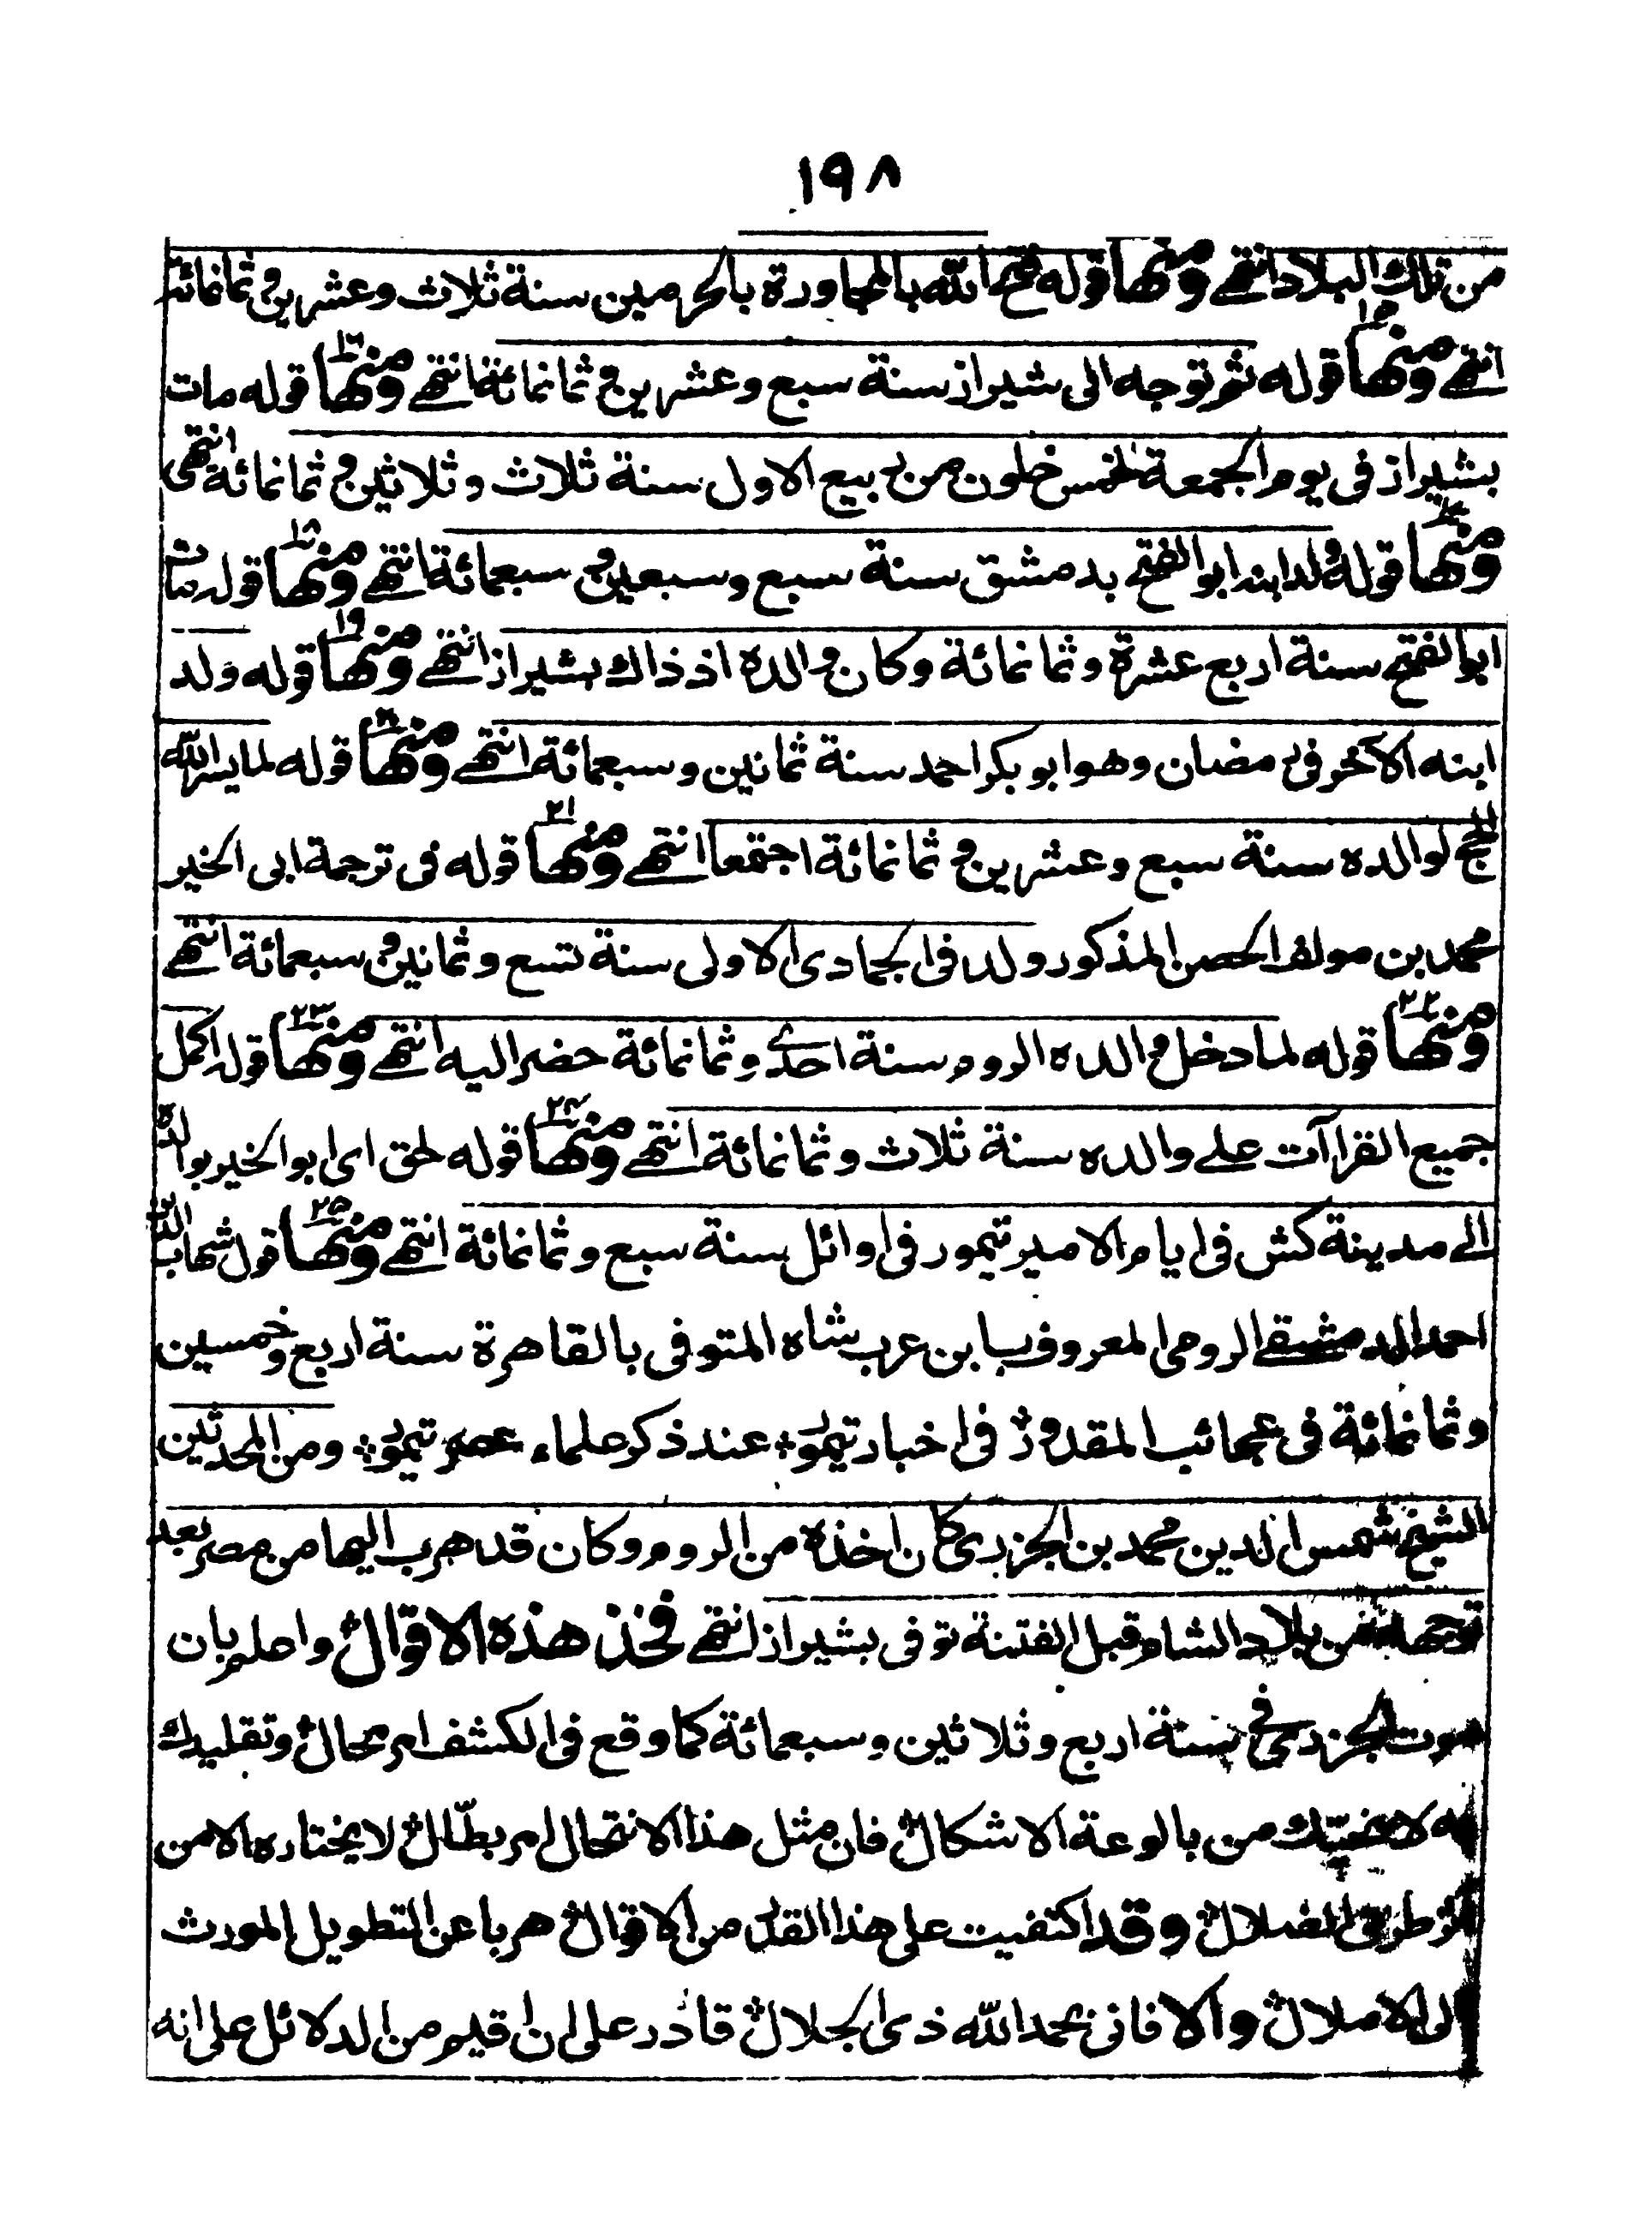 ١٩٨
من تلك البلاد انتهى ومنها قوله فتح الله بالمجاورة بالحرمين سنة ثلاث وعشرين و ثمانمائة
١٥
انتهى ومنها قوله ثم توجه الى شيراز سنة سبع وعشرين و ثمانمائة انتهى ومنها ١٦ قوله مات
بشيراز فى يوم الجمعة لخمس خلون من ربيع الاول سنة ثلاث وثلاثين و ثمانمائة انتهى
ومنها ١٧ قوله ولد ابنه ابو الفتح بدمشق سنة سبع وسبعين و سبعمائة انتهى ومنها ١٨ قوله مات
ابو الفتح سنة اربع عشرة وثمانمائة وكان والده اذ ذاك بشيراز انتهى ومنها ١٩ قوله ولد
ابنه الآخر فى رمضان وهو ابو بكر احمد سنة ثمانين وسبعمائة انتهى ومنها ٢٠ قوله لما يسر الله
الحج لوالده سنة سبع وعشرين و ثمانمائة اجتمعا انتهى ومنها ٢١ قوله فى ترجمة ابى الخير
محمد بن مولف الحصن المذكور ولد فى الجمادى الاولى سنة تسع وثمانين و سبعمائة انتهى
ومنها ٢٢ قوله لما دخل والده الروم سنة احدى وثمانمائة حضر اليه انتهى ومنها ٢٣ قوله اكمل
جميع القراآت على والده سنة ثلاث وثمانمائة انتهى ومنها ٢٤ قوله لحق اى ابو الخير بوالده
الى مدينة كش فى ايام الامير تيمور فى اوائل سنة سبع وثمانمائة انتهى ومنها ٢٥ قول شهاب الدين
احمد الدمشقى الرومى المعروف بابن عرب شاه المتوفى بالقاهرة سنة اربع وخمسين
وثمانمائة فى عجائب المقدور فى اخبار تيمور عند ذكر علماء عصر تيمور ومن المحدثين
الشيخ شمس الدين محمد بن الجزرى كان اخذه من الروم وكان قد هرب اليها من مصر بعد
توجهه من بلاد الشام قبل الفتنة توفى بشيراز انتهى فخذ هذه الاقوال واعلم بان
موت الجزرى فى سنة اربع وثلاثين وسبعمائة كما وقع فى الكشف امر محال وتقليدك
به لا ينجيك من بالوعة الاشكال فان مثل هذا الانتحال امر بطّال لا يختاره الا من
طرق الضلال وقد اكتفيت على هذا القدر من الاقوال هربا عن التطويل المورث
الى الاملال والا فانى بحمد الله ذى الجلال قادر على ان اقيم من الدلائل على انه